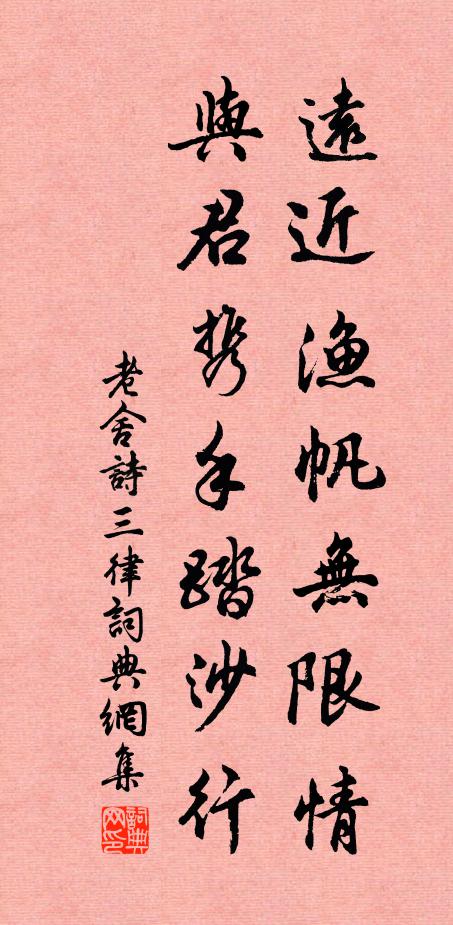 遠近漁帆無限情
與君携手踏沙行
老舍詩三律詞典網集
詞典
网印